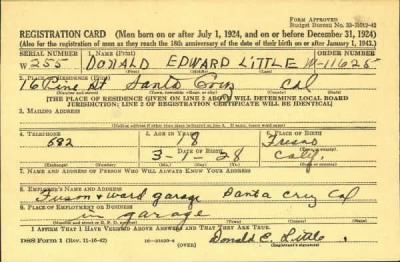 Form Approved
Budget Bureau No. 33-R012-42
REGISTRATION CARD (Men born on or after July 1, 1924, and on or before December 31, 1924)
(Also for the registration of men as they reach the 18th anniversary of the date of their birth on or after January 1, 1943.)
SERIAL NUMBER
1. NAME (Print)
ORDER NUMBER
W 255 DONALD EDWARD LITTLE 11625
(First) (Middle) (Last)
2. PLACE OF RESIDENCE (Print)
16 Pine St Santa Cruz Cal
(Number and street) (Town, township, village, or city) (County) (State)
[THE PLACE OF RESIDENCE GIVEN ON LINE 2 ABOVE WILL DETERMINE LOCAL BOARD
JURISDICTION; LINE 2 OF REGISTRATION CERTIFICATE WILL BE IDENTICAL]
3. MAILING ADDRESS
[Mailing address if other than place indicated on line 2. If same, insert word same]
4. TELEPHONE
5. AGE IN YEARS
6. PLACE OF BIRTH
682 18
DATE OF BIRTH
3-7-28
(Mo.) (Day) (Yr.)
(Town or county)
(State or country)
7. NAME AND ADDRESS OF PERSON WHO WILL ALWAYS KNOW YOUR ADDRESS
8. EMPLOYER'S NAME AND ADDRESS
ward garage Santa Cruz Cal
9. PLACE OF EMPLOYMENT OR BUSINESS
in garage
(Number and street or R. F. D. number) (Town) (County) (State)
I AFFIRM THAT I HAVE VERIFIED ABOVE ANSWERS AND THAT THEY ARE TRUE.
DSS Form 1 (Rev. 11-16-42) (OVER) Donald E. Little
(Registrant's signature)